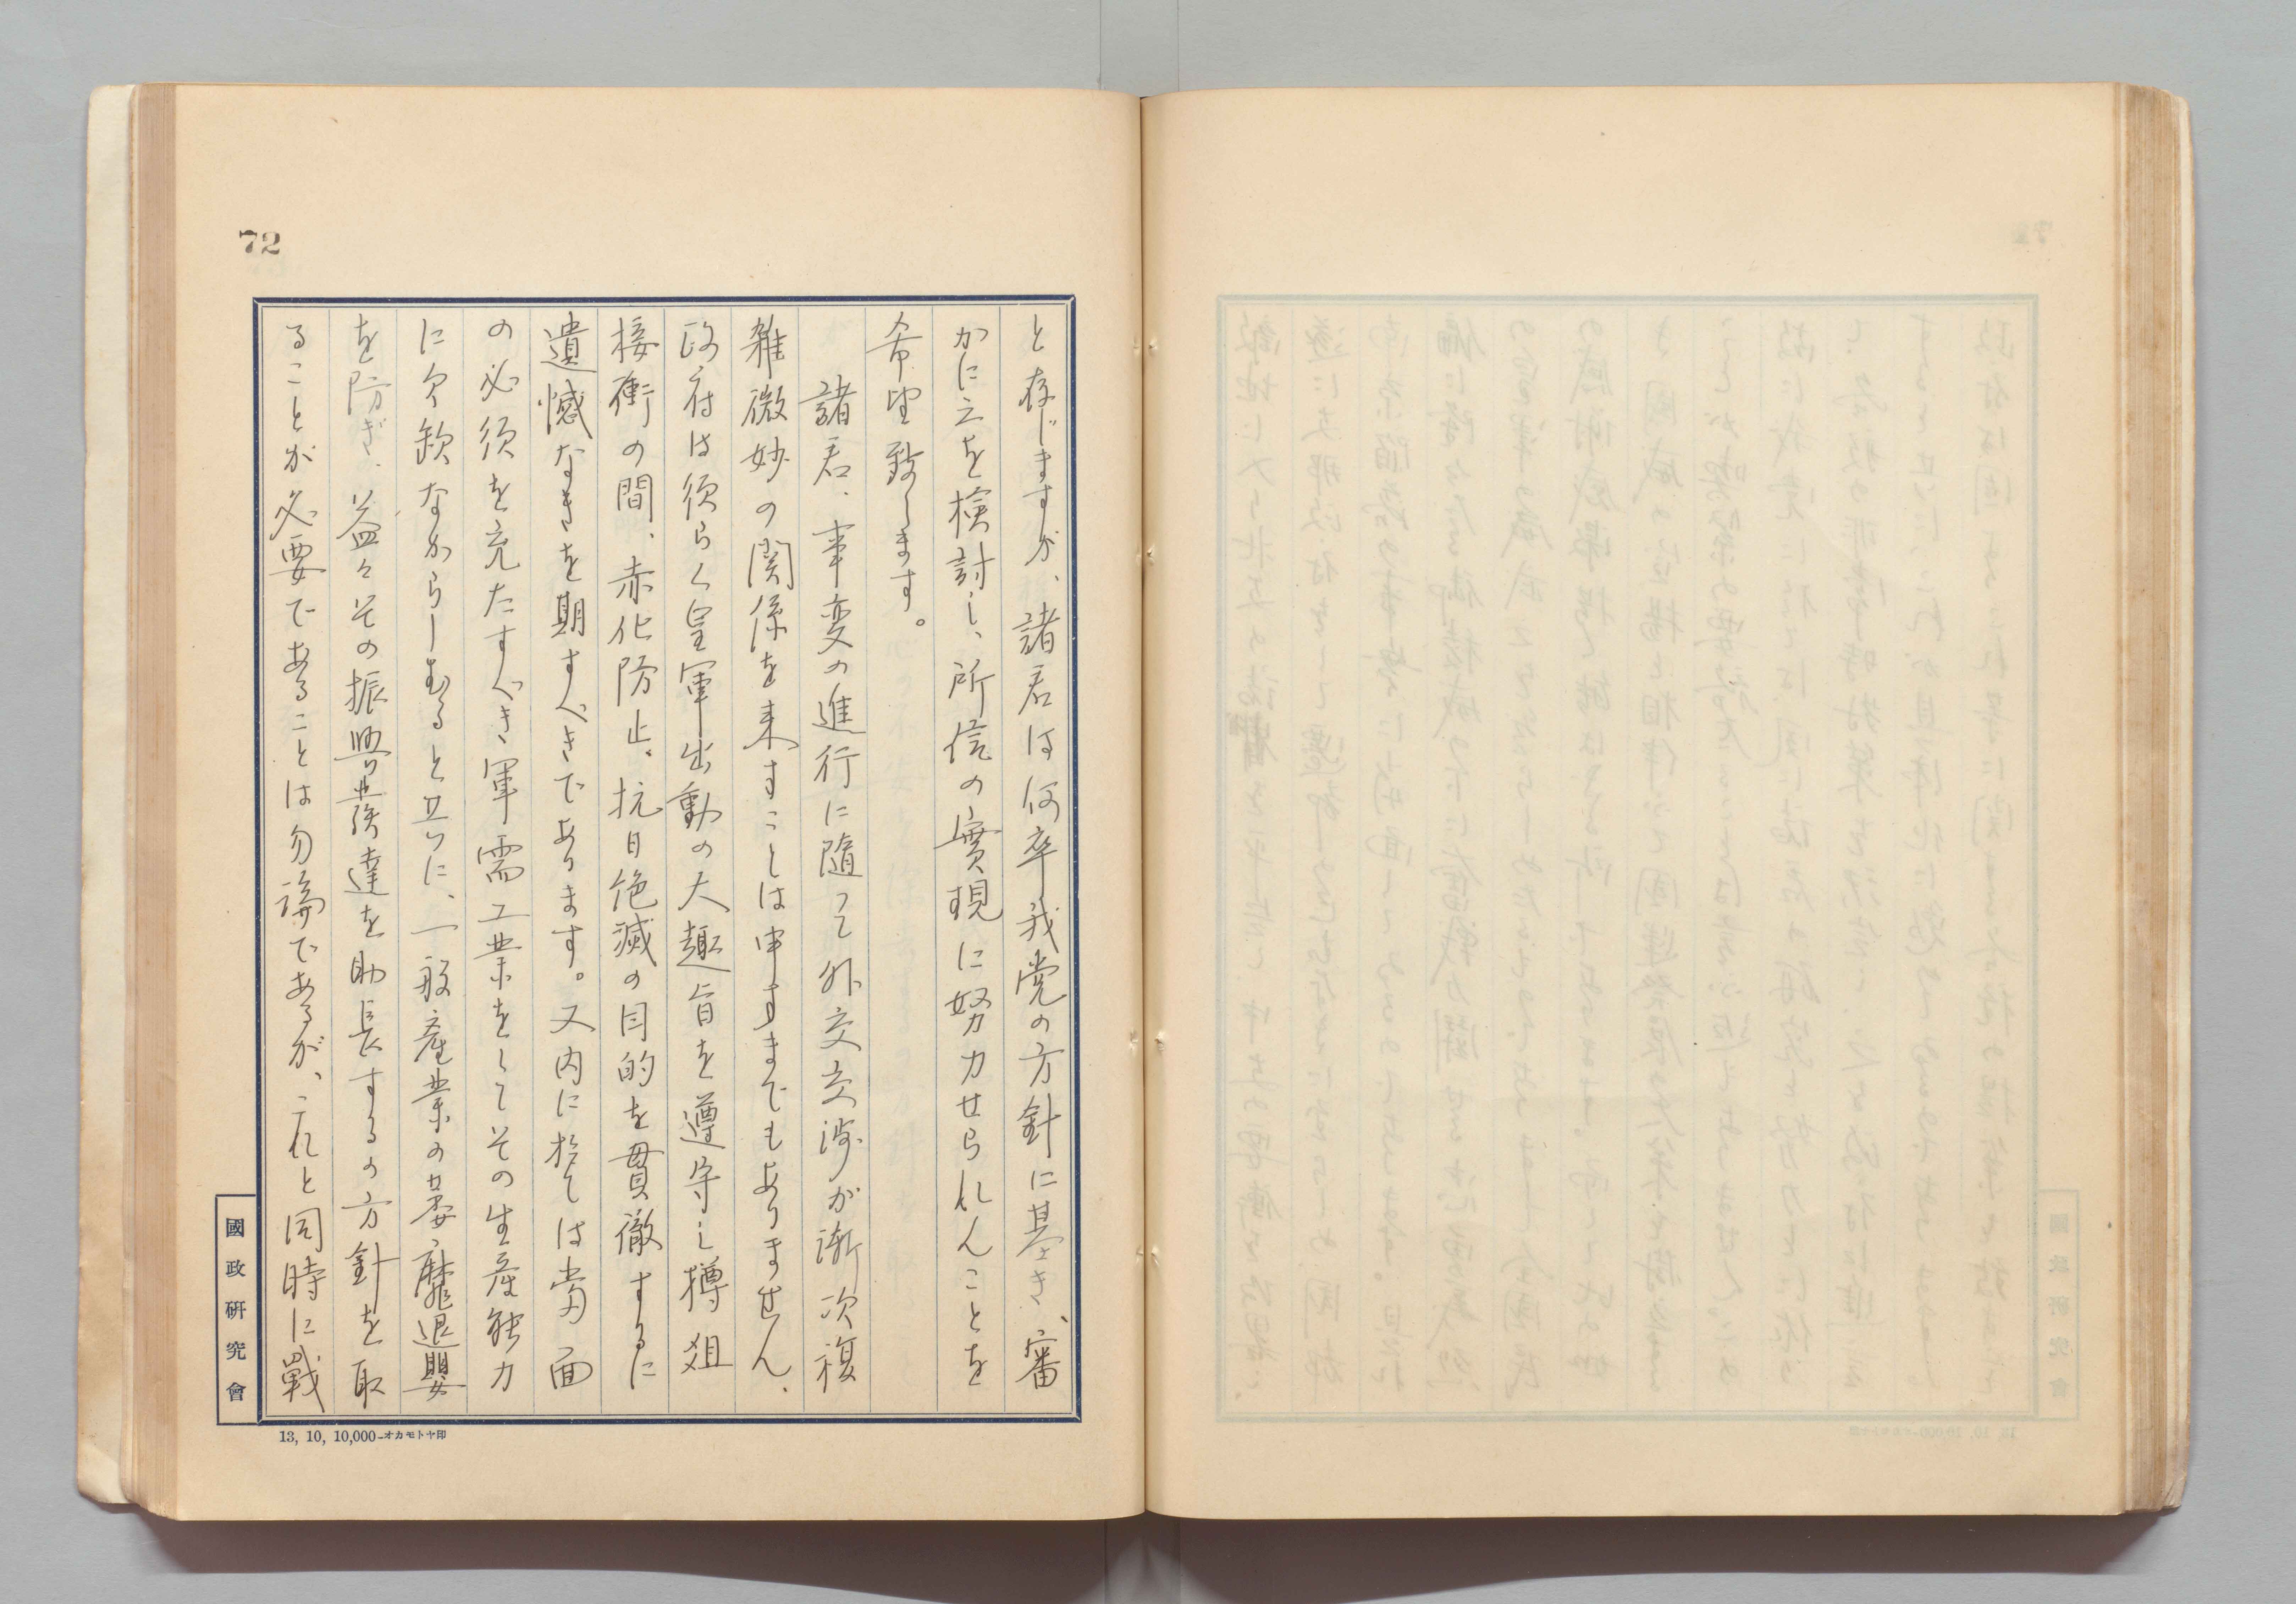 72
と存じますが、諸君は何卒我党の方針に基き、審
かに之を検討し、所信の實現に努力せられんことを
希望致します。
諸君、事変の進行に随つて外交交渉が漸次複
雑微妙の関係を来すことは申すまでもありません、
政府は須らく皇軍出動の大趣旨を遵守し樽俎
接衝の間、赤化防止、抗日絶滅の目的を貫徹するに
遺憾なきを期すべきであります。又内に於ては当面
の必須を充たすべき軍需工業をしてその生産能力
に欠欽なからしむると共に、一般産業の萎靡退嬰
を防ぎ、益々その振興發達を助長するの方針を取
ることが必要であることは勿論であるが、これと同時に戰
國政研究會
13, 10, 10,000-オカモトヤ印